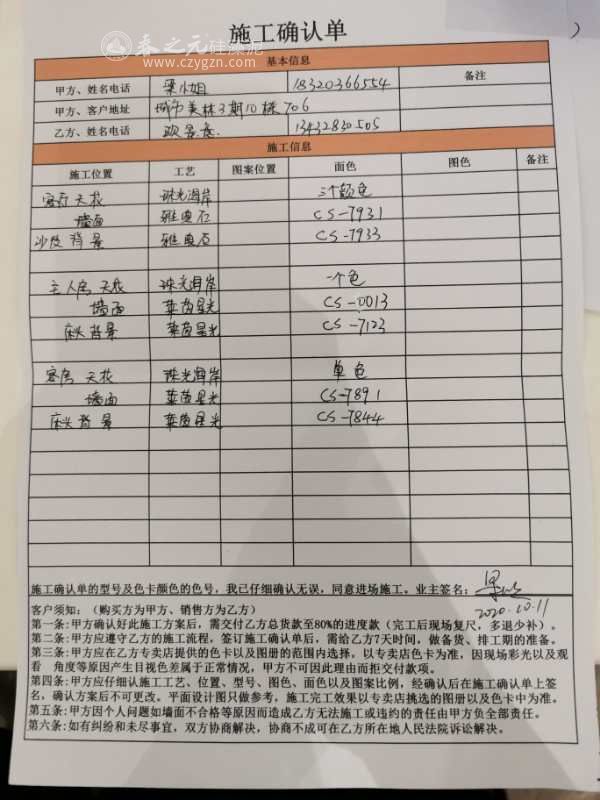 施工确认单
春之元硅藻泥
www.czygzn.com
基本信息
甲方、姓名电话 梁小姐 18320366554 备注
甲方、客户地址 城市美林3期10栋706
乙方、姓名电话 13432830505
施工信息
施工位置 工艺 图案位置 面色 图色 备注
客厅天花 珠光海岸 三个颜色
墙面 雅典石 CS-7931
沙发背景 雅典石 CS-7933
主人房天花 珠光海岸 一个色
墙面 莱茵星光 CS-0013
床头背景 莱茵星光 CS-7123
客房天花 珠光海岸 单色
墙面 莱茵星光 CS-7891
床头背景 莱茵星光 CS-7844
施工确认单的型号及色卡颜色的色号，我已仔细确认无误，同意进场施工。业主签名：
2020.10.11
客户须知：（购买方为甲方、销售方为乙方）
第一条:甲方确认好此施工方案后，需交付乙方总货款至80%的进度款（完工后现场复尺，多退少补）。
第二条:甲方应遵守乙方的施工流程，签订施工确认单后，需给乙方7天时间，做备货、排工期的准备。
第三条:甲方应在乙方专卖店提供的色卡以及图册的范围内选择，以专卖店色卡为准，因现场彩光以及观
看 角度等原因产生目视色差属于正常情况，甲方不可因此理由而拒交付款项。
第四条:甲方应仔细认施工工艺、位置、型号、图色、面色以及图案比例，经确认后在施工确认单上签
名，确认方案后不可更改。平面设计图只做参考，施工完工效果以专卖店挑选的图册以及色卡中为准。
第五条:甲方因个人问题如墙面不合格等原因而造成乙方无法施工或违约的责任由甲方负全部责任。
第六条:如有纠纷和未尽事宜，双方协商解决，协商不成可在乙方所在地人民法院诉讼解决。